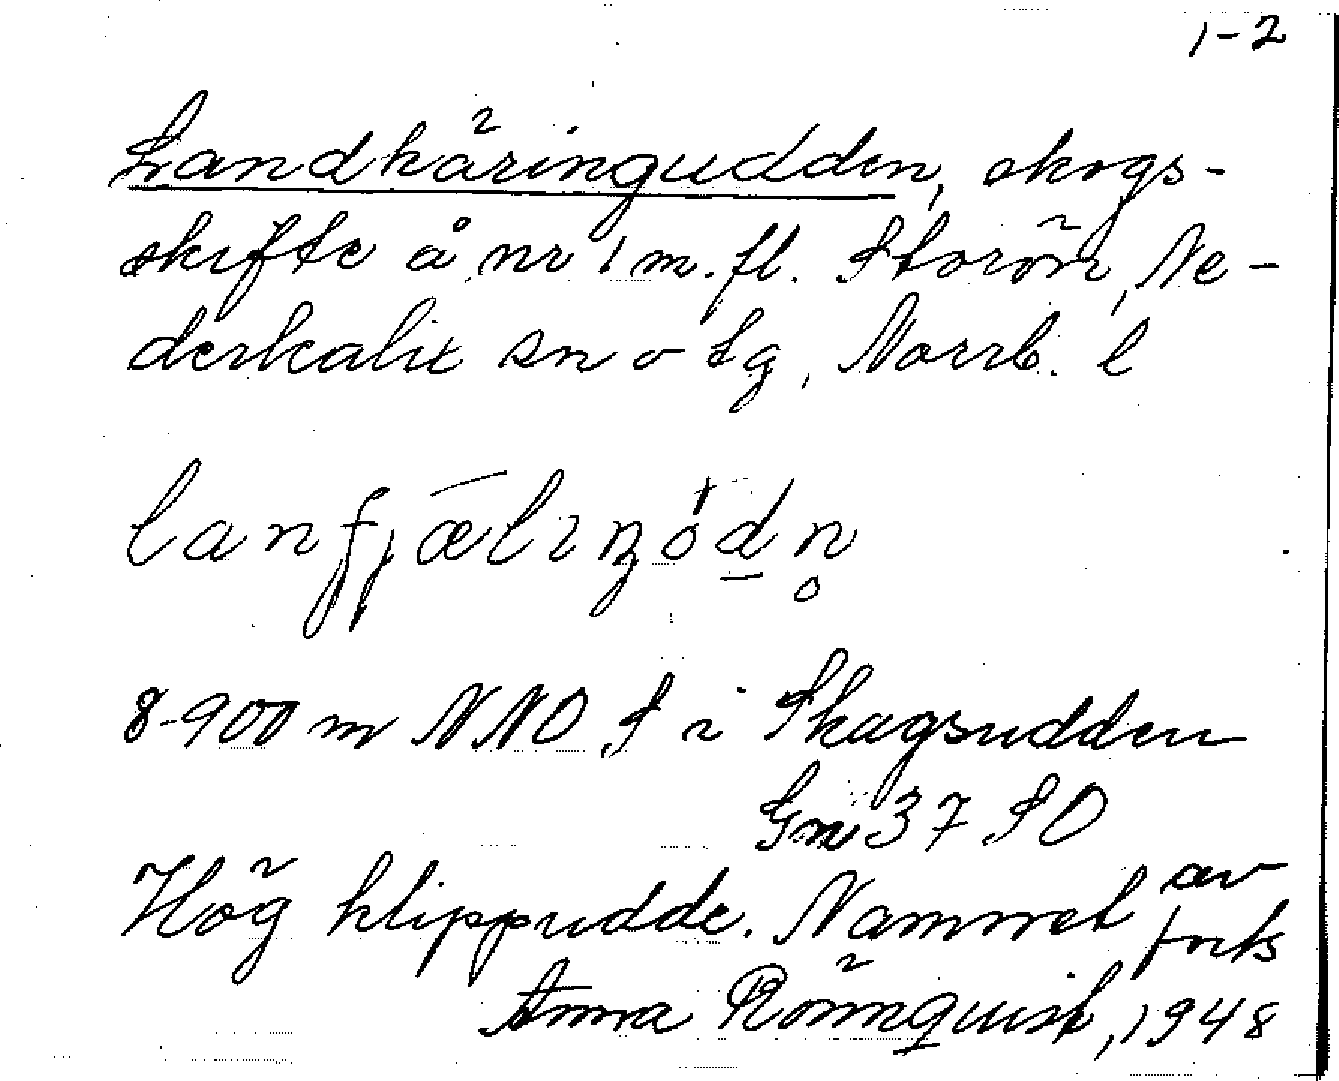 1-2
Landkäringudden, skogs-
skifte å nr 1 m.fl. Storön, Ne-
derkalix sn o tg, Norrb. l
lanfjǣlıŋódn̥
8-900 m NNO S i Skagsudden
Gm 37 SO
Hög klippudde. Namnet av
forts
Anna Rönnquist, 1948